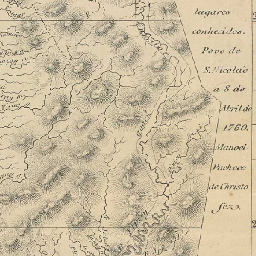 lugares
conhecidos.
Povo de
S. Nicoláo
a 8 de
Abril de
1760.
Manoel
Pacheco
de Christo
fez.